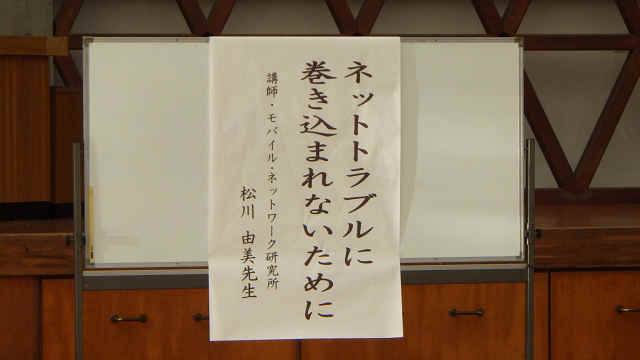 ネットトラブルに
巻き込まれないために
講師・モバイル・ネットワーク研究所
松川 由美先生